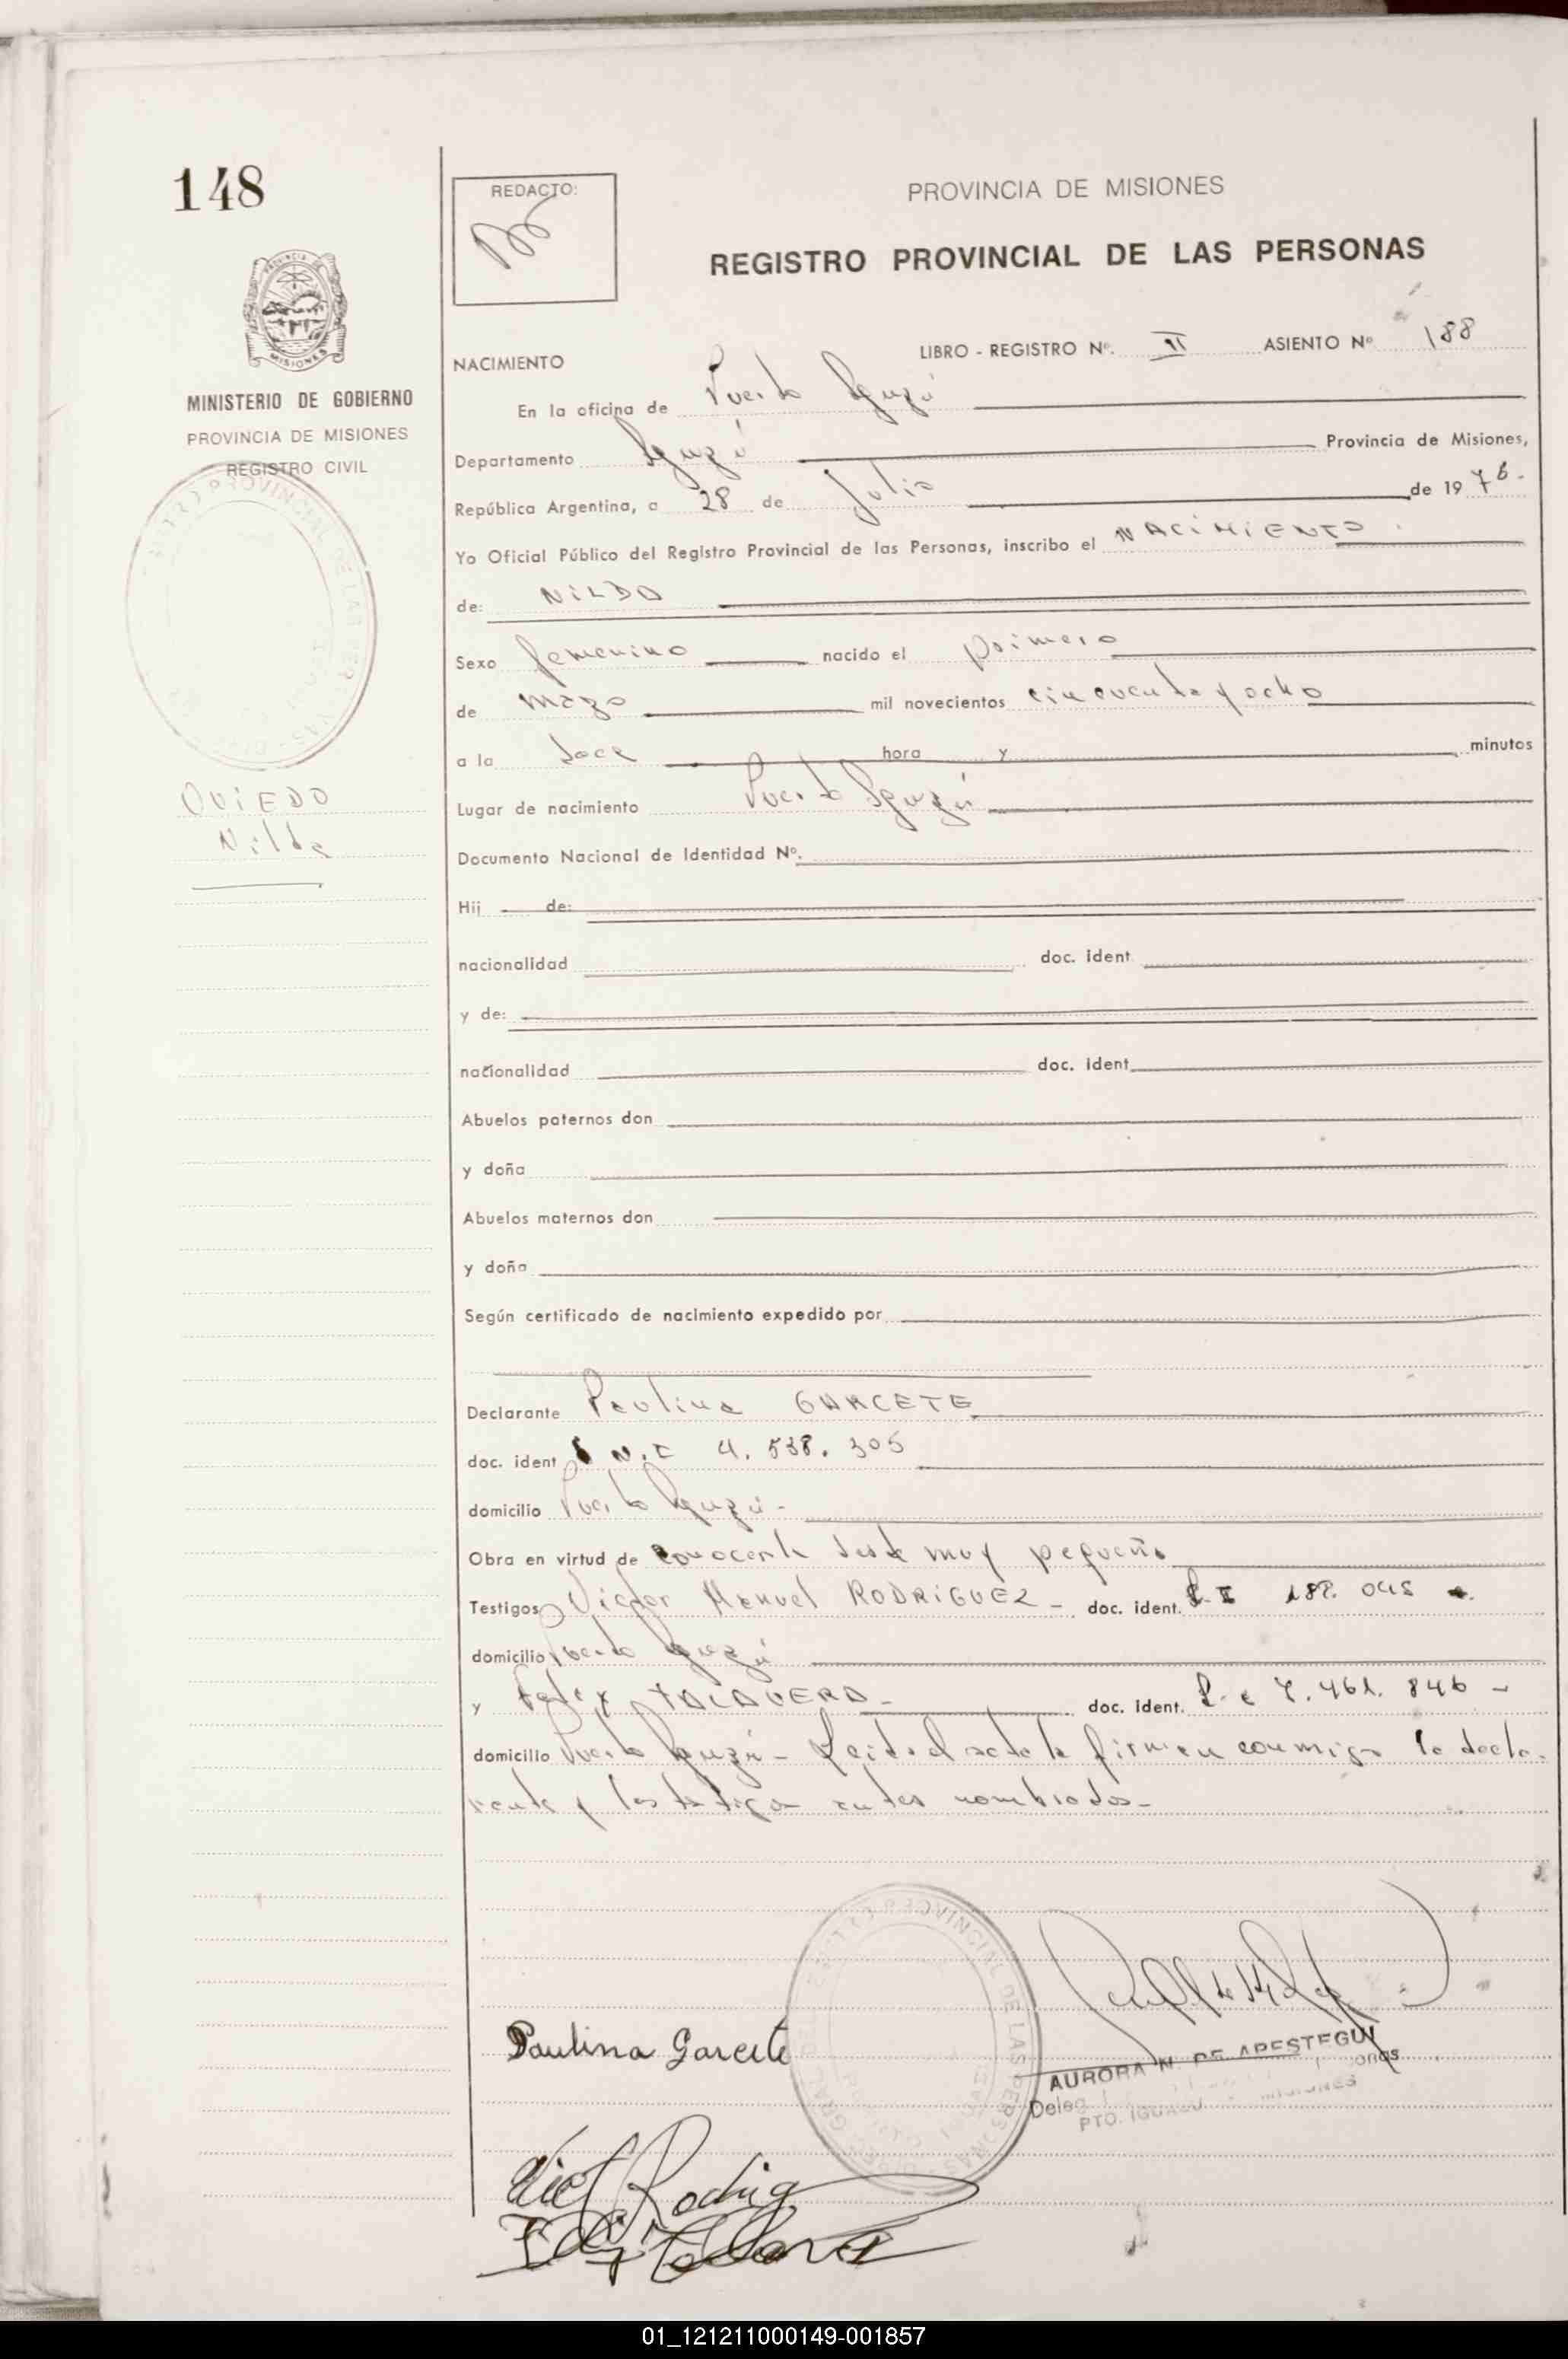 148
REDACTO:
PROVINCIA DE MISIONES
REGISTRO PROVINCIAL DE LAS PERSONAS
MISIONES
MINISTERIO DE GOBIERNO
PROVINCIA DE MISIONES
REGISTRO CIVIL
OVIEDO
Nilda
NACIMIENTO
LIBRO - REGISTRO Nº. II ASIENTO Nº 188
En la oficina de Puerto Iguazú
Departamento Iguazú Provincia de Misiones,
República Argentina, a 28 de Julio de 1976.
Yo Oficial Público del Registro Provincial de las Personas, inscribo el NACIMIENTO
de: NILDA
Sexo femenino nacido el primero
de marzo mil novecientos cincuenta y ocho
a la doce hora y minutos
Lugar de nacimiento Puerto Iguazú
Documento Nacional de Identidad Nº.
Hij de:
nacionalidad doc. ident
y de:
nacionalidad doc. ident
Abuelos paternos don
y doña
Abuelos maternos don
y doña
Según certificado de nacimiento expedido por
Declarante Paulina GARCETE
doc. ident 4.538.305
domicilio Puerto Iguazú-
Obra en virtud de conocerla desde muy pequeña
Testigos Victor Manuel RODRIGUEZ- doc. ident.
domicilio Puerto Iguazú
y Felix TALAVERA- doc. ident. L. e 7.461.846 -
domicilio Puerto Iguazú- Leida el acta la firman conmigo la decla-
rante y los testigos antes nombrados-
Paulina Garcete
AURORA N. DE APESTEGUI
PTO. IGUAZU MISIONES
Vict Rodrig
01_121211000149-001857